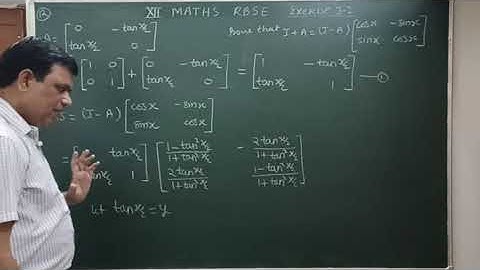 XII MATHS RBSE Exercise 3.2
A = [0 -tan x/2; tan x/2 0] Prove that I+A = (I-A) [cosx -sinx; sinx cosx]
[1 0; 0 1] + [0 -tan x/2; tan x/2 0] = [1 -tan x/2; tan x/2 1] — ①
= (I-A) [cosx -sinx; sinx cosx]
= [tan x/2; tan x/2 1] [1-tan² x/2 / 1+tan² x/2 - 2tan x/2 / 1+tan² x/2; 2tan x/2 / 1+tan² x/2 1-tan² x/2 / 1+tan² x/2]
Let tan x/2 = y